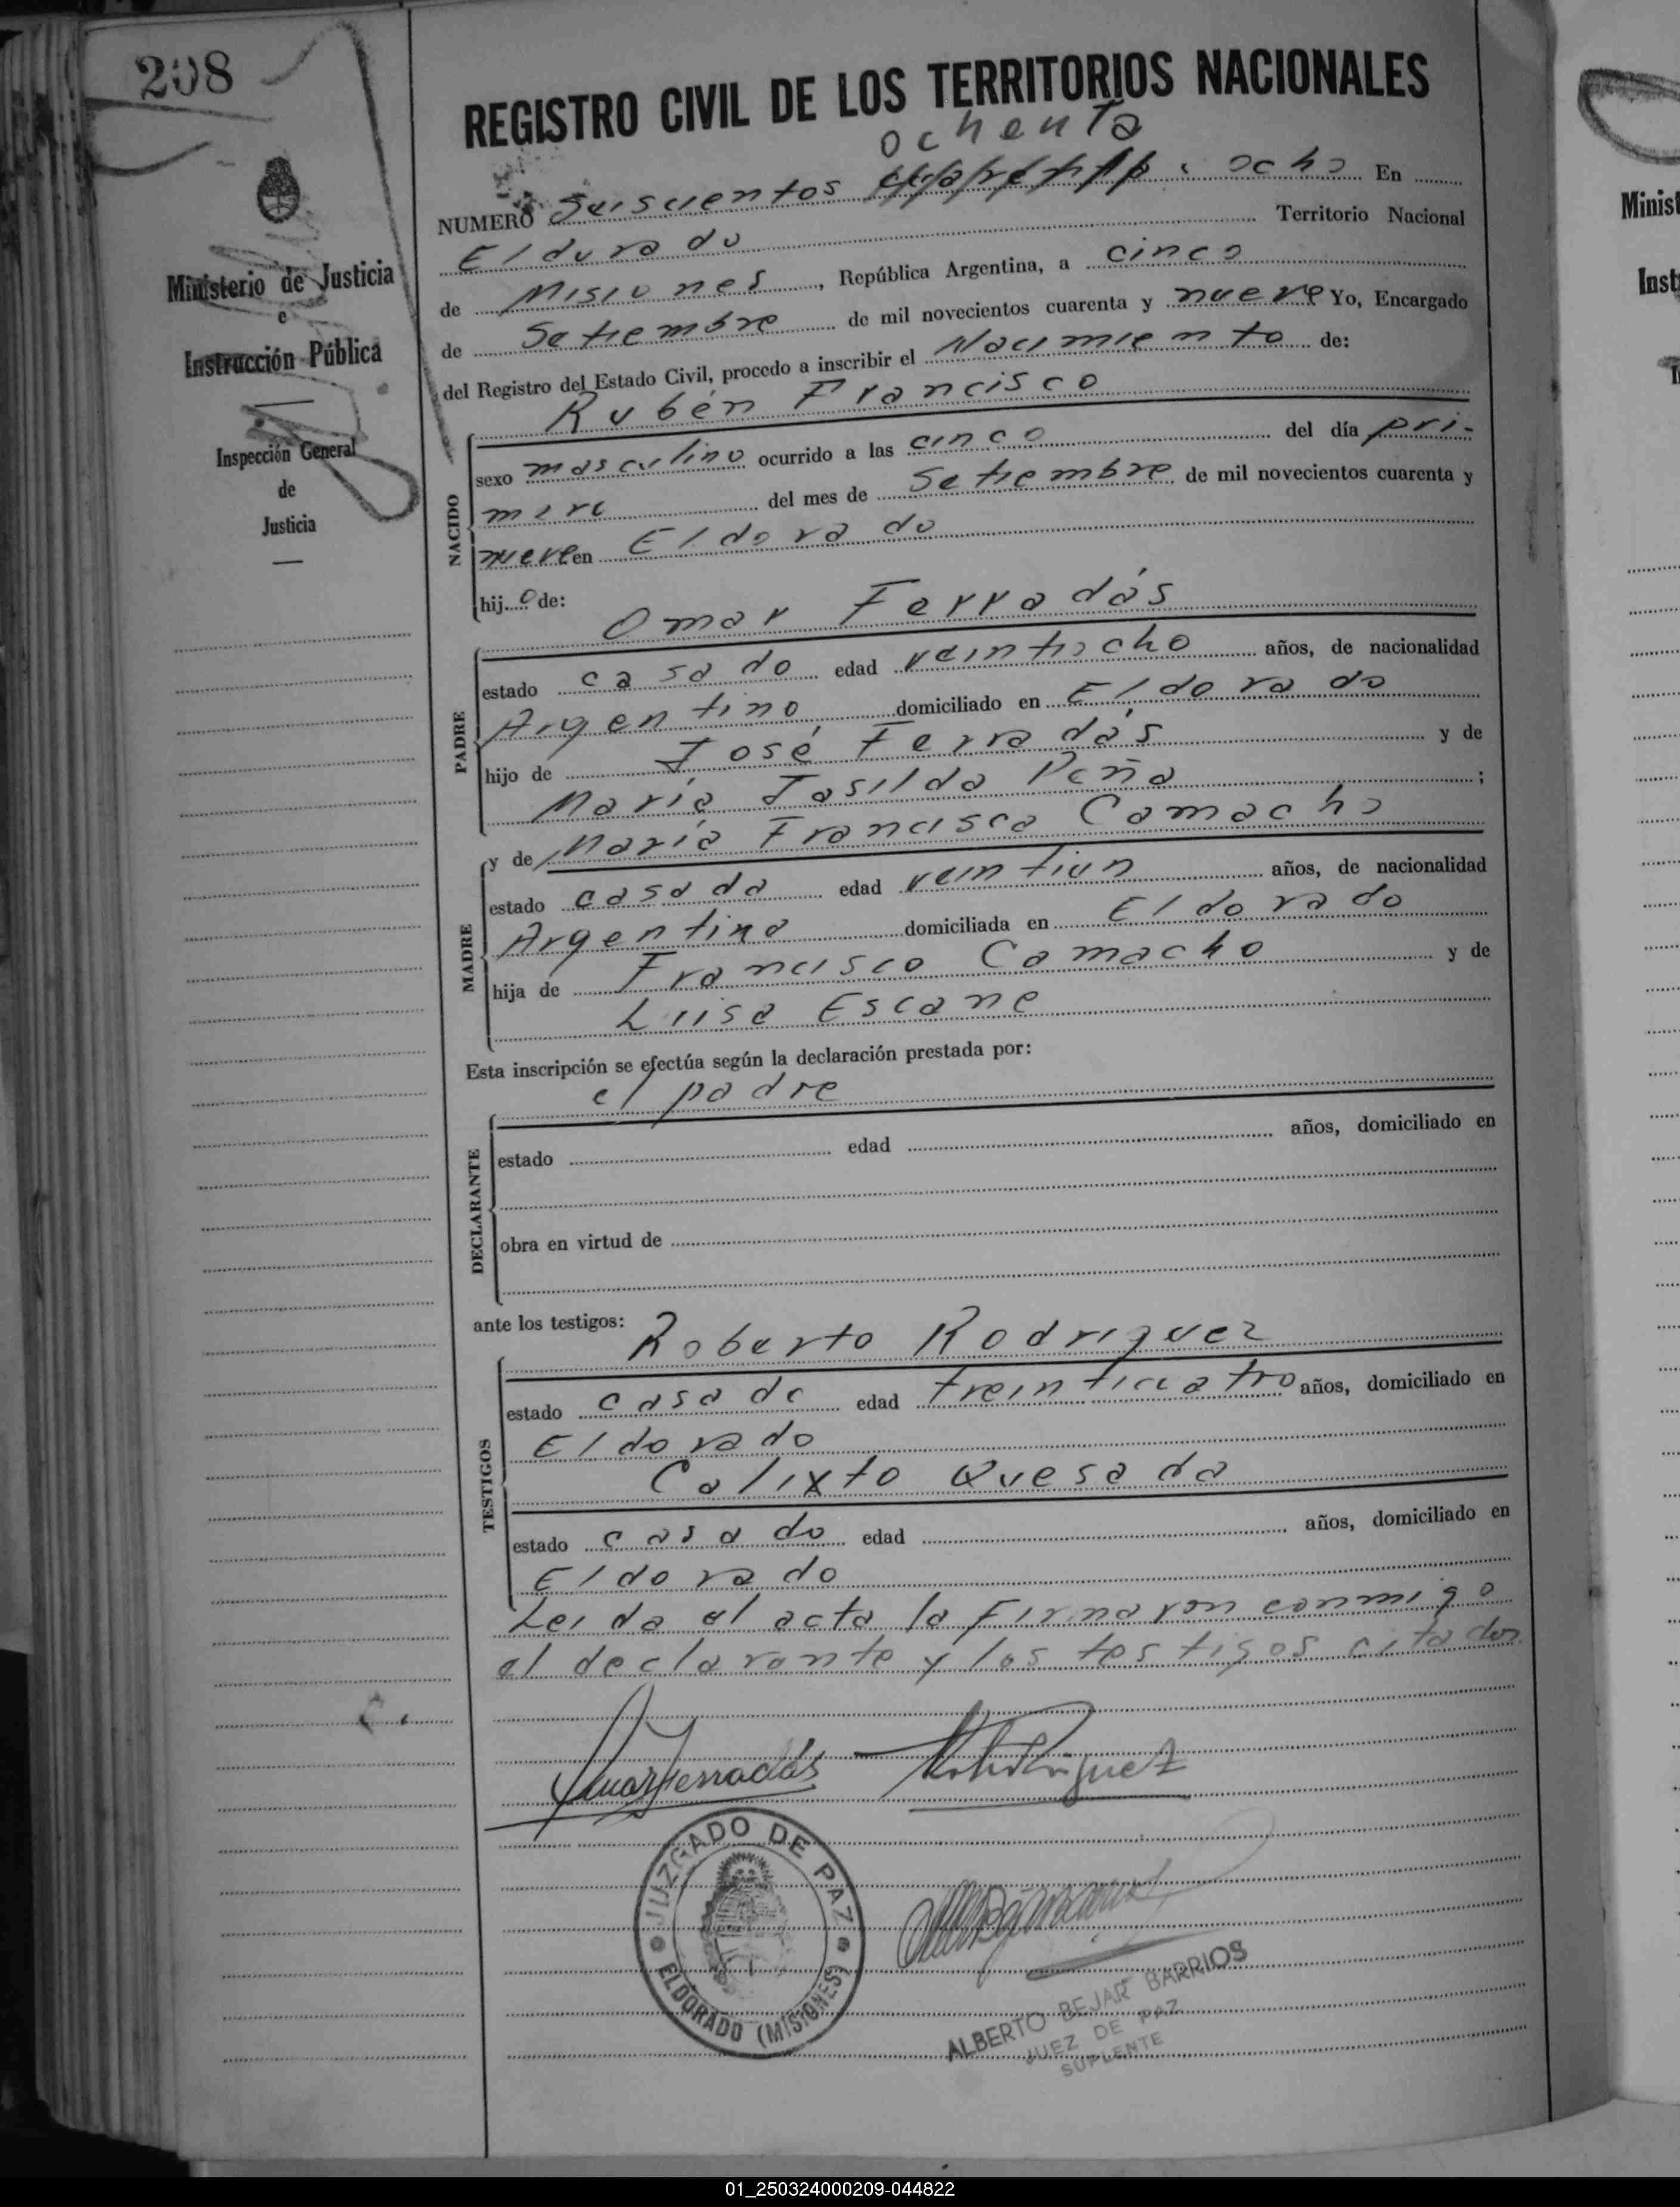 208
REGISTRO CIVIL DE LOS TERRITORIOS NACIONALES
ochenta
NUMERO Seiscientos cuarenta i ocho En
Eldorado Territorio Nacional
de Misiones, República Argentina, a cinco
de Setiembre de mil novecientos cuarenta y nueve Yo, Encargado
del Registro del Estado Civil, procedo a inscribir el Nacimiento de:
Rubén Francisco
Ministerio de Justicia
e
Instrucción Pública
Inspección General
de
Justicia
NACIDO
sexo masculino ocurrido a las cinco del día pri-
mero del mes de Setiembre de mil novecientos cuarenta y
nueve en Eldorado
hijo de:
Omar Ferradás
PADRE
estado casado edad veintiocho años, de nacionalidad
Argentino domiciliado en Eldorado
hijo de José Ferradás y de
María Tasilda Peña ;
y de María Francisca Camacho
MADRE
estado casada edad veintiun años, de nacionalidad
Argentina domiciliada en Eldorado
hija de Francisco Camacho y de
Luisa Escane
Esta inscripción se efectúa según la declaración prestada por:
el padre
DECLARANTE
estado edad años, domiciliado en
obra en virtud de
ante los testigos:
Roberto Rodriguez
TESTIGOS
estado casado edad treinticuatro años, domiciliado en
Eldorado
Calixto Quesada
estado casado edad años, domiciliado en
Eldorado
Leida el acta la Firmaron conmigo
el declarante y los testigos citados
JUZGADO DE PAZ
ELDORADO (MISIONES)
ALBERTO BEJAR BARRIOS
JUEZ DE PAZ
SUPLENTE
01_250324000209-044822